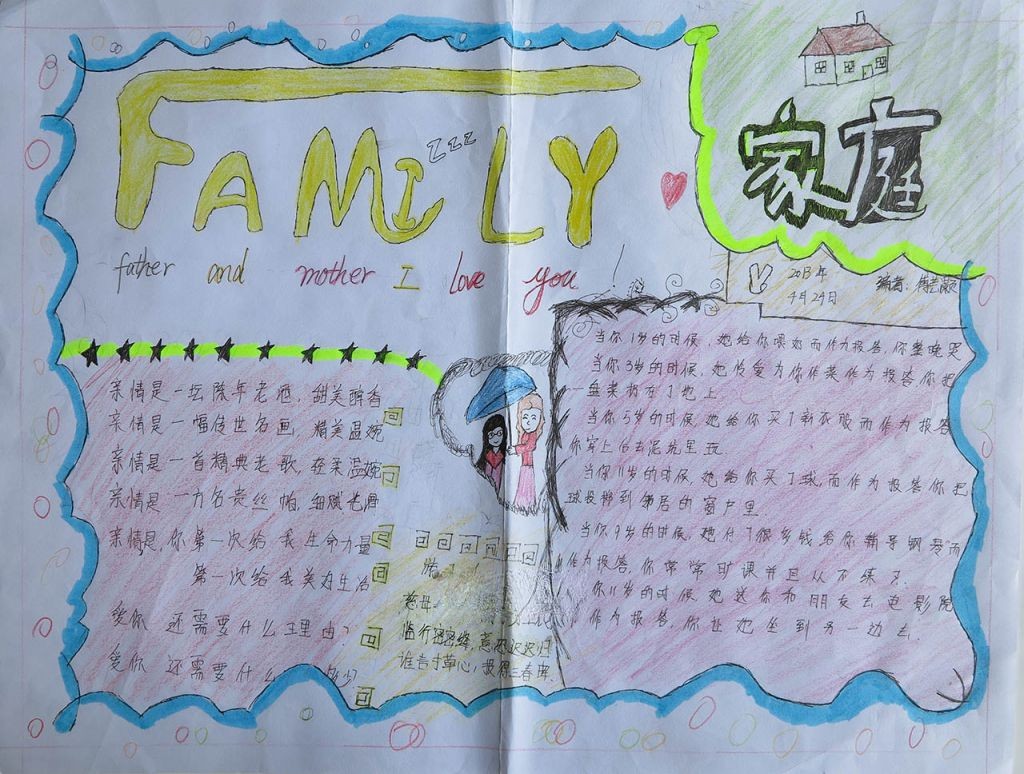 FAMILY
zzz
家庭
father and mother I love you
2013年
4月24日
编者:
亲情是一坛陈年老酒,甜美醇香
亲情是一幅传世名画,精美温婉
亲情是一首精典老歌,轻柔温婉
亲情是一方名贵丝帕,细腻光滑
亲情是,你第一次给我生命力量
第一次给我美好生活
爱你 还需要什么理由?
爱你 还需要什么
慈母
临行密密缝,意恐迟迟归
谁言寸草心,报得三春晖.
当你1岁的时候,她给你喂奶而作为报答,你整晚哭
当你3岁的时候,她怜爱为你作菜作为报答你把
一盘菜扔在了地上
当你5岁的时候,她给你买了新衣服而作为报答
你穿上他去泥坑里玩.
当你11岁的时候,她给你买了球,而作为报答你把
球投掷到邻居的窗户里
当你9岁的时候,她付了很多钱给你辅导钢琴而
作为报答,你常常旷课并且从不练习.
你11岁的时候她送你和朋友去电影院
作为报答,你让她坐到另一边去